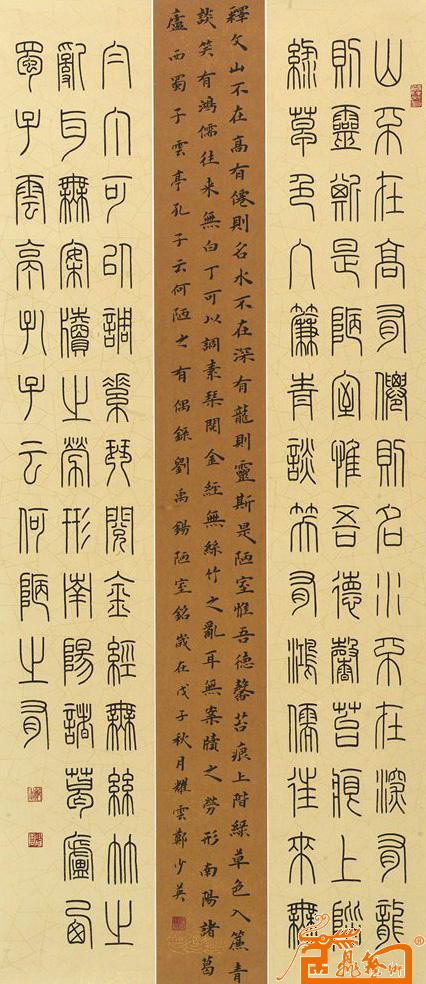 山不在高有僊則名水不在深有龍
則靈斯是陋室惟吾德馨苔痕上階
綠草色入簾青談笑有鴻儒往來無
釋文山不在高有僊則名水不在深有龍則靈斯是陋室惟吾德馨苔痕上階綠草色入簾青
談笑有鴻儒往來無白丁可以調素琴閱金經無絲竹之亂耳無案牘之勞形南陽諸葛
廬西蜀子雲亭孔子云何陋之有偶錄劉禹錫陋室銘歲在戊子秋月耀雲鄭少英
白丁可以調素琴閱金經無絲竹之
亂耳無案牘之勞形南陽諸葛廬西
蜀子雲亭孔子云何陋之有